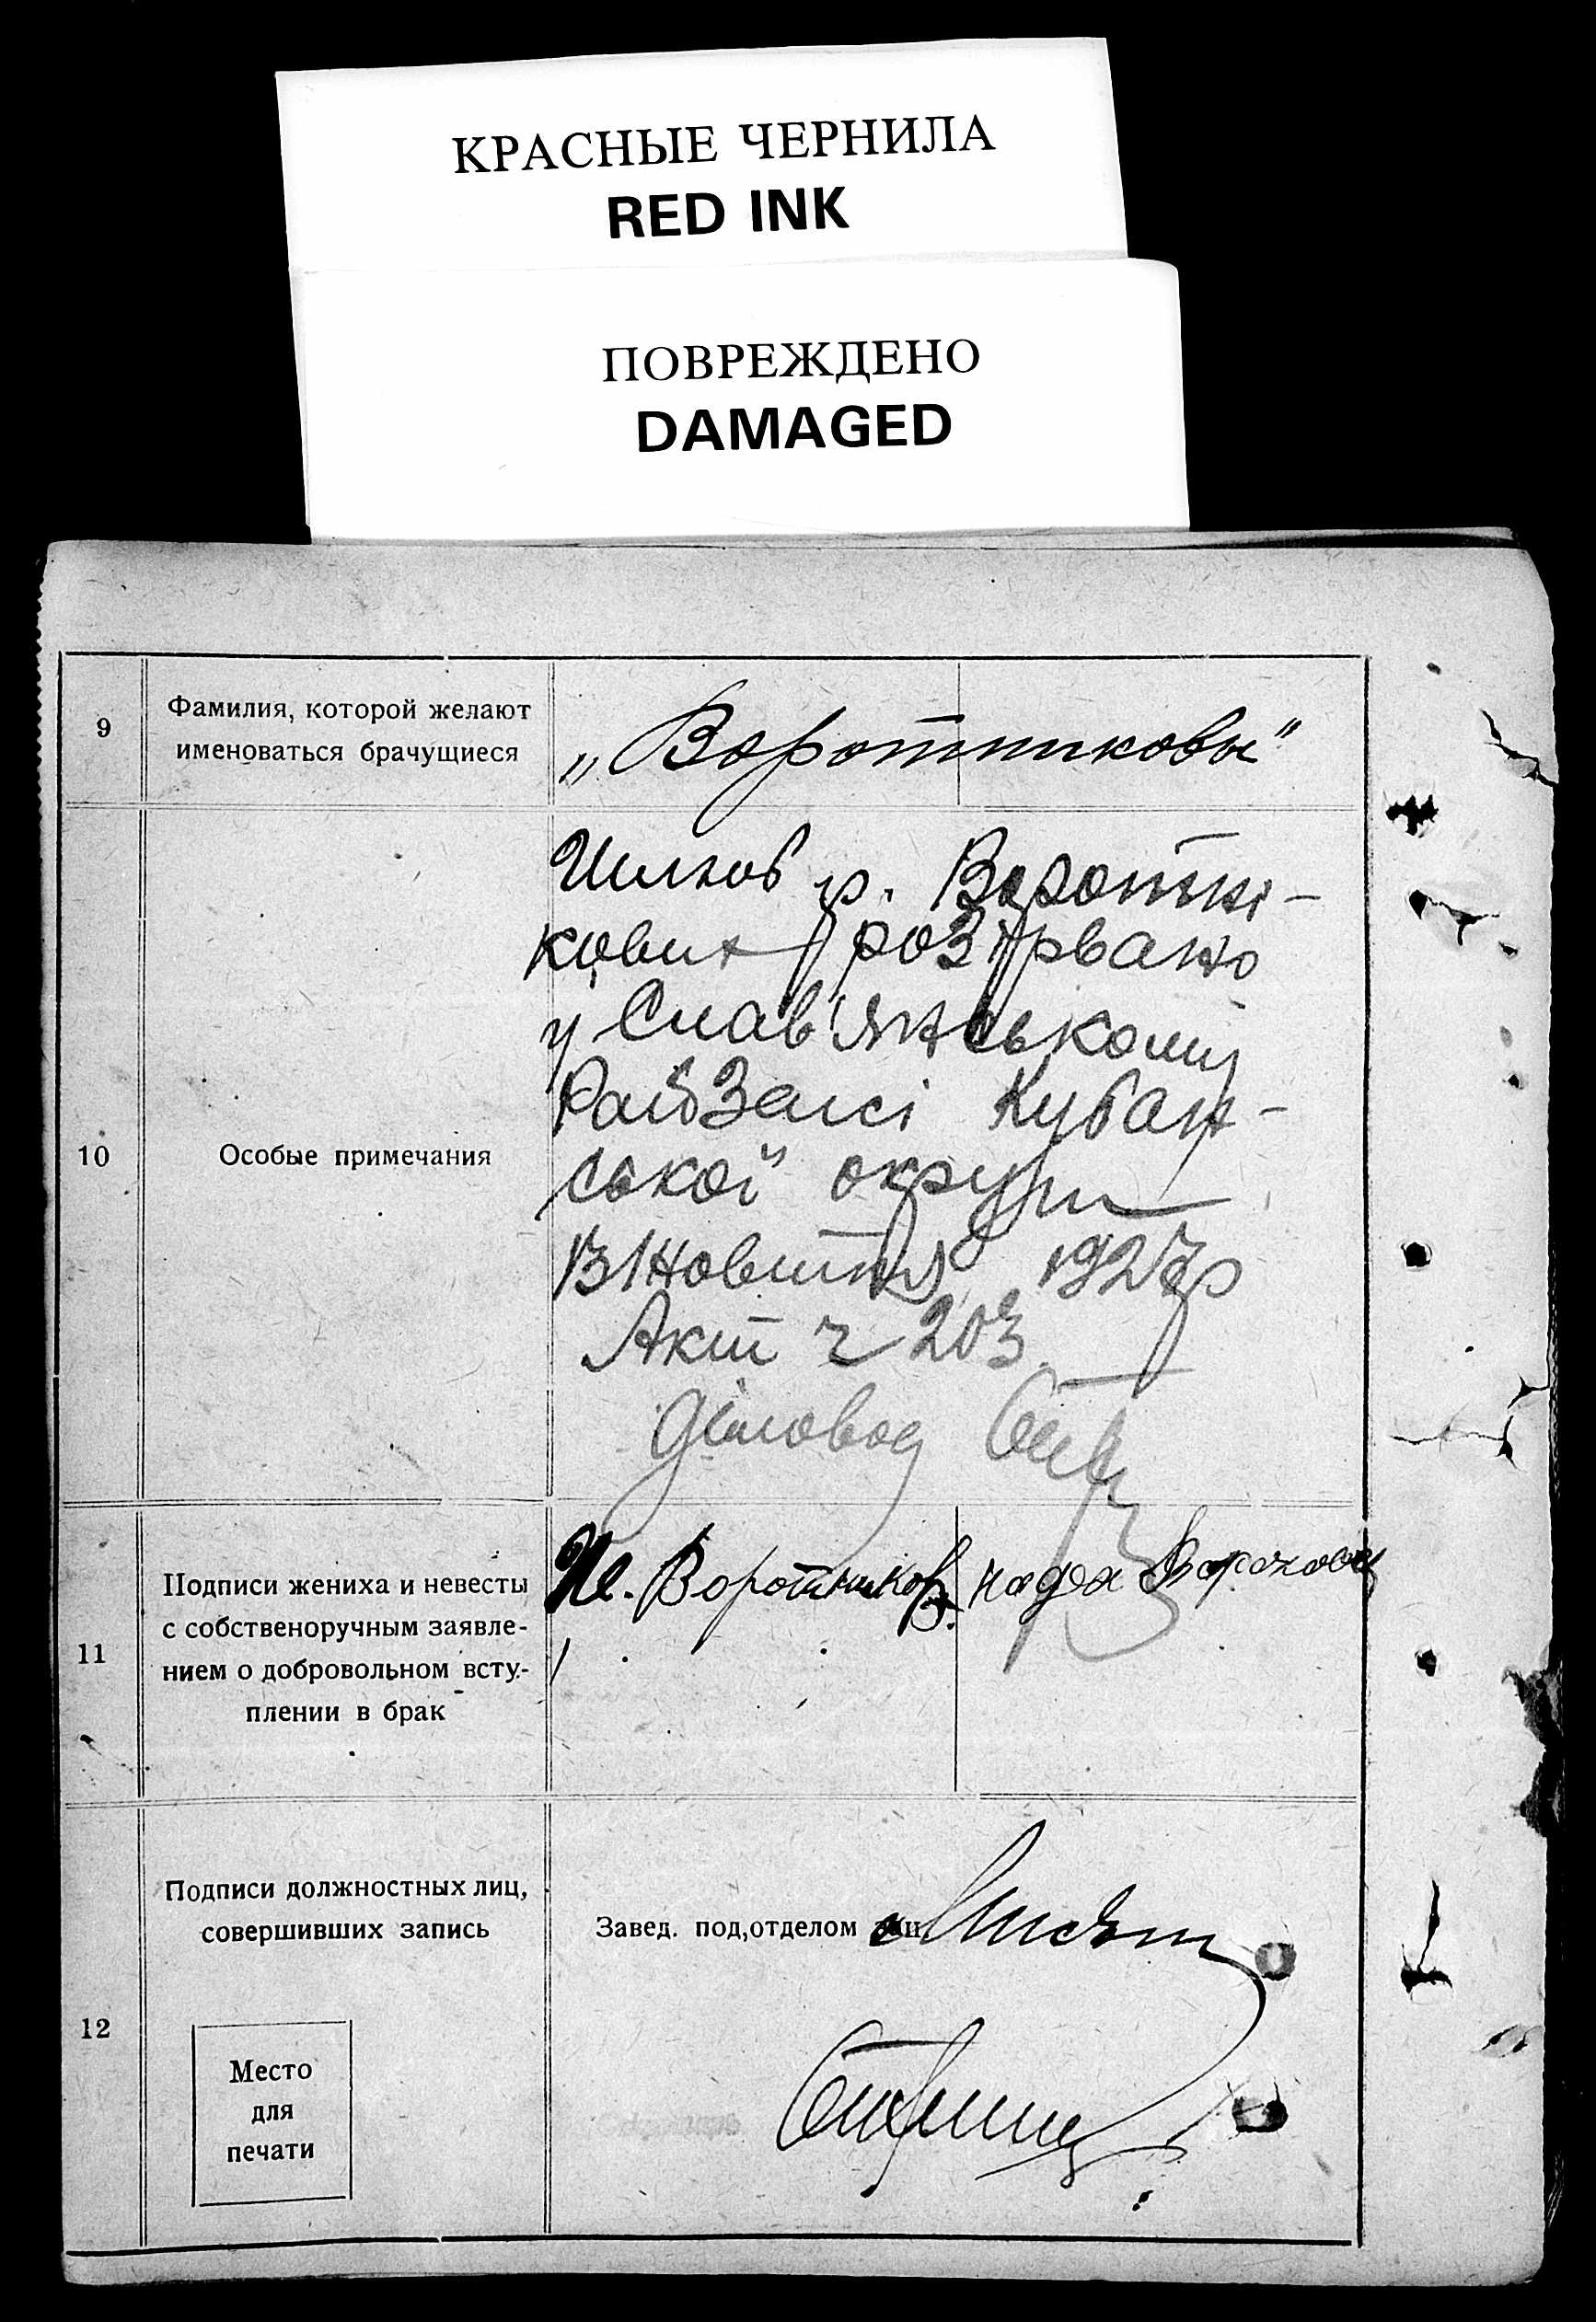 КРАСНЫЕ ЧЕРНИЛА
RED INK
ПОВРЕЖДЕНО
DAMAGED
9
Фамилия, которой желают
именоваться брачущиеся
„Воротниковы"
10
Особые примечания
Шлюб гр. Воротні-
кових розірвано
у Слав'янському
Райзагсі Кубан-
ської округи
13 Новитня 1927 р
Акт ч 203
Діловод
11
Подписи жениха и невесты
с собственоручным заявле-
нием о добровольном всту-
плении в брак
Воротников
надя
12
Подписи должностных лиц,
совершивших запись
Завед. под,отделом
Место
для
печати